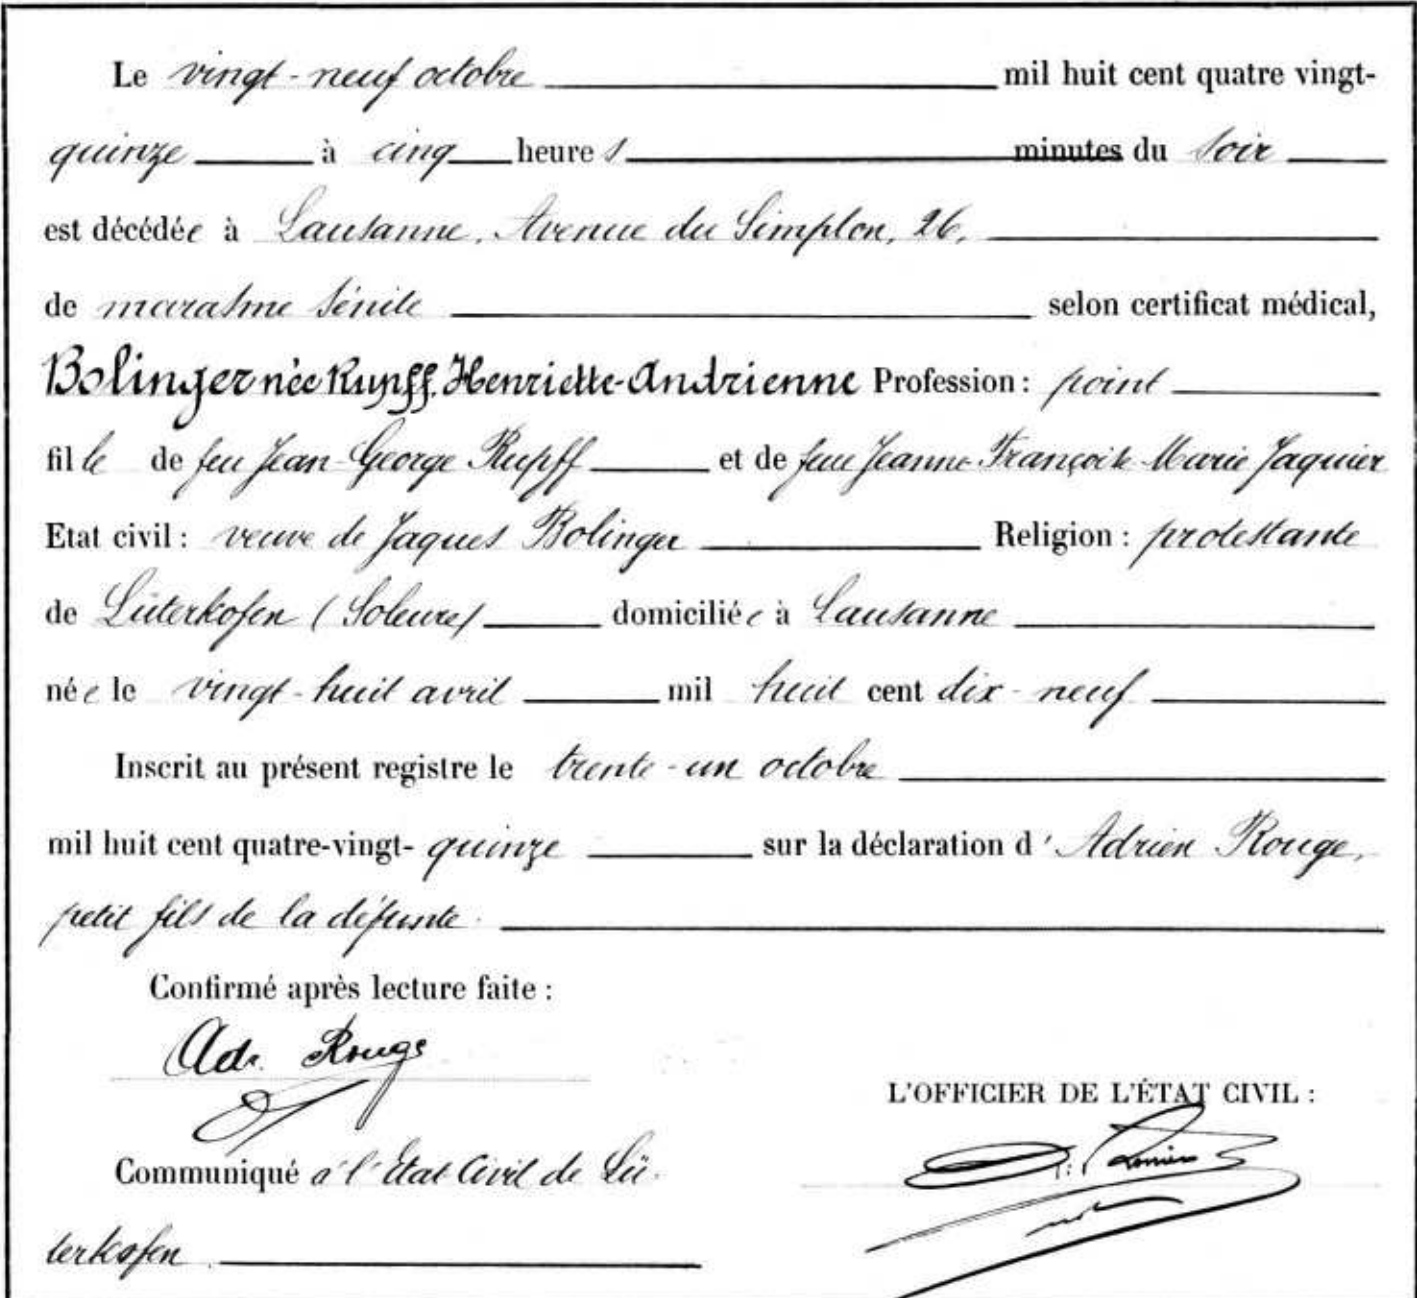 Le vingt-neuf octobre mil huit cent quatre vingt-
quinze à cinq heures minutes du soir
est décédée à Lausanne, Avenue du Simplon, 26,
de marasme sénile selon certificat médical,
Bolinger née Rupff, Henriette-Andrienne Profession : point
fille de feu Jean-George Rupff et de feue Jeanne-Françoise-Marie Jaquier
Etat civil : veuve de Jaques Bolinger Religion : protestante
de Lüterkofen (Soleure) domiciliée à Lausanne
née le vingt-huit avril mil huit cent dix-neuf
Inscrit au présent registre le trente-un octobre
mil huit cent quatre-vingt-quinze sur la déclaration d'Adrien Rouge,
petit fils de la défunte.
Confirmé après lecture faite :
Adr. Rouge
L'OFFICIER DE L'ÉTAT CIVIL :
Communiqué à l'Etat Civil de Lü-
terkofen